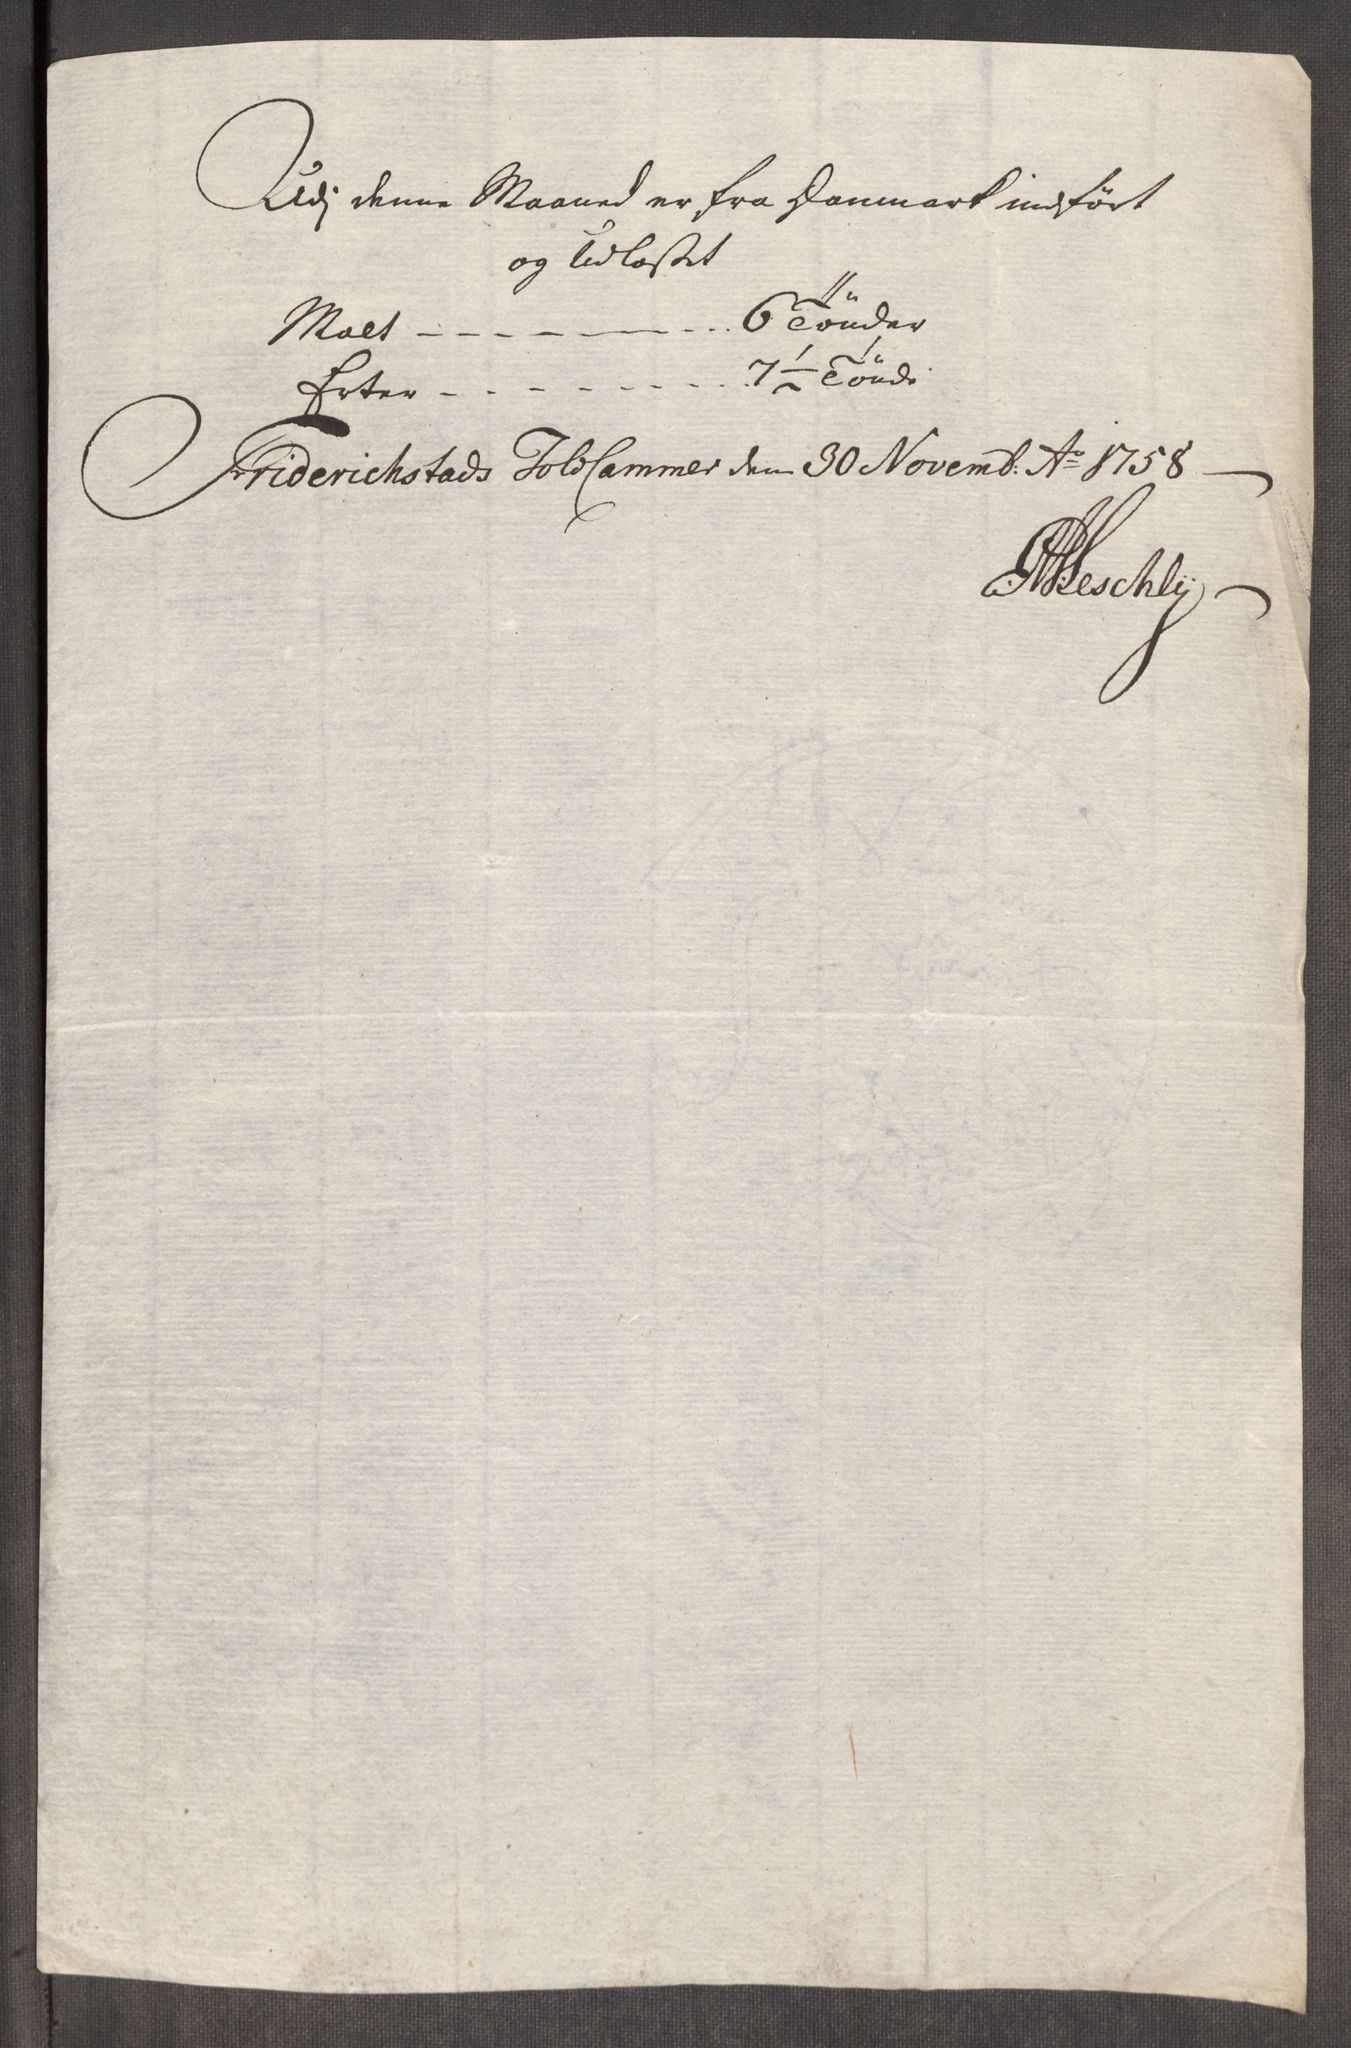 Udj denne Maaned er fra Danmark indført
og Udlosset
Malt - - - - - - - 6 Tönder
Erter - - - - - - - 7 1/2 Tönd:
Friderichstads ToldCammer den 30 Novemb: Ao 1758